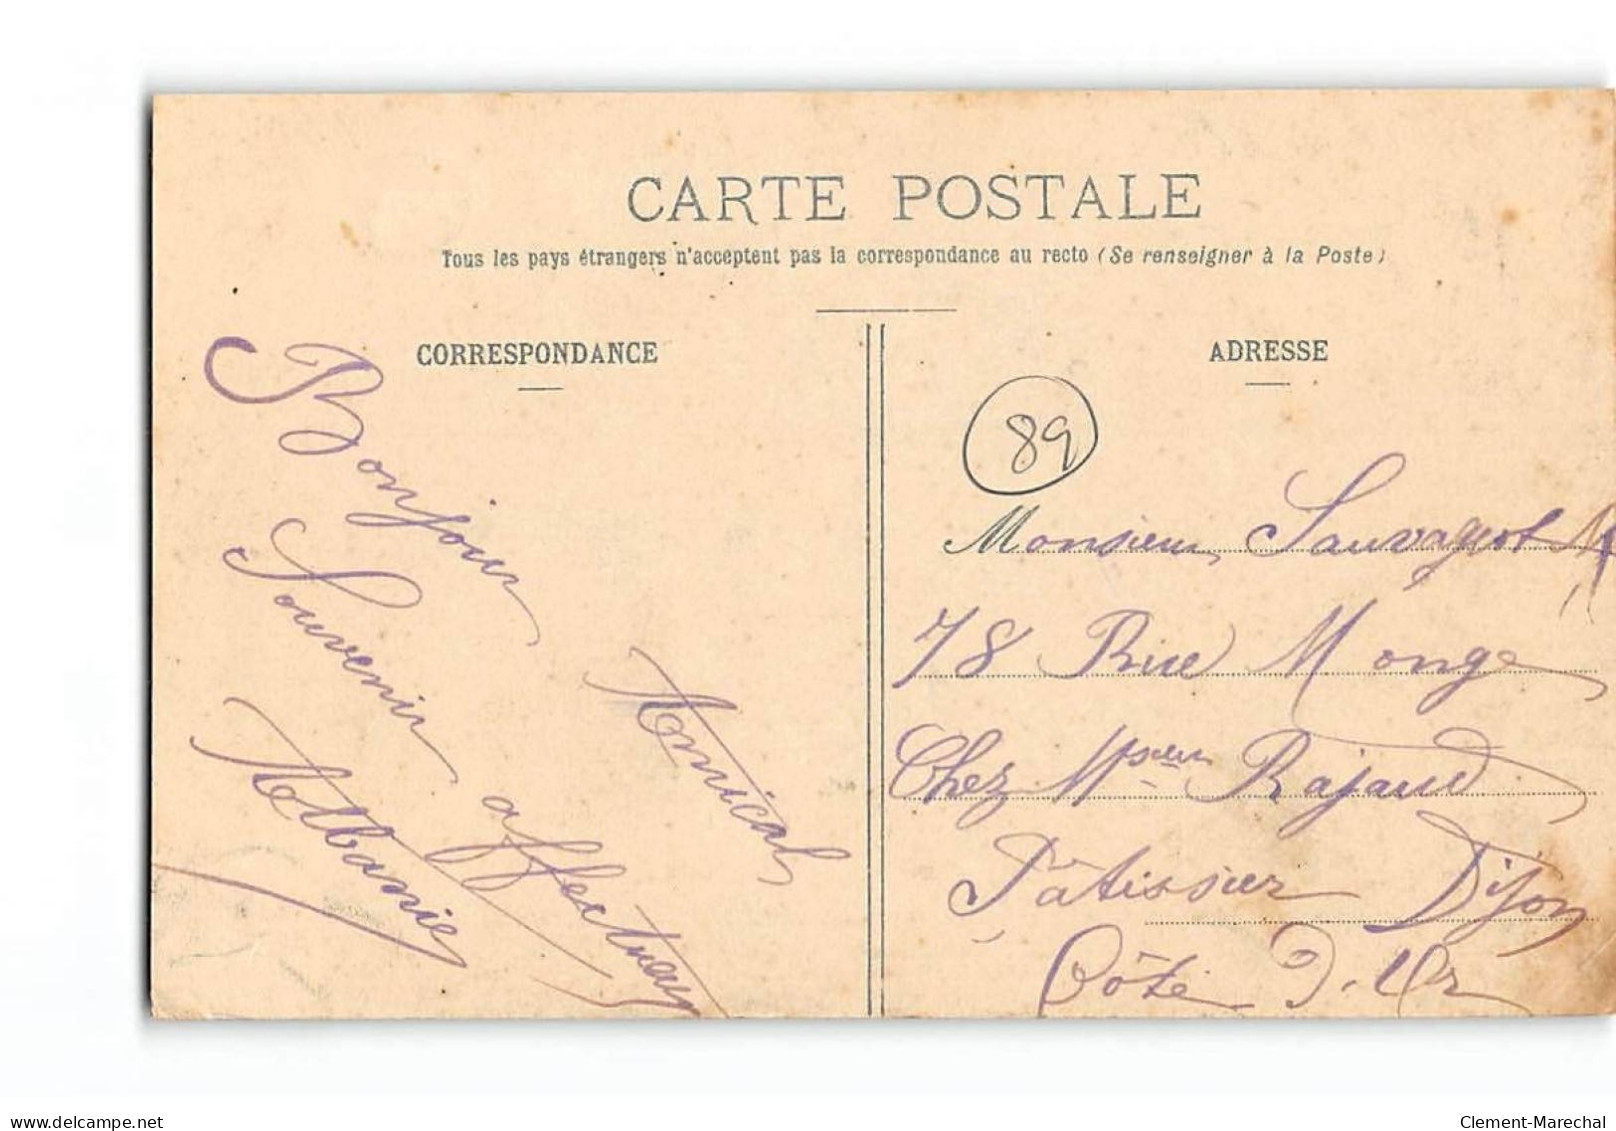 CARTE POSTALE
Tous les pays étrangers n'acceptent pas la correspondance au recto (Se renseigner à la Poste)
CORRESPONDANCE
Bonjour Amical
Souvenir affectueux
Albanie
ADRESSE
89
Monsieur Sauvageot
78 Rue Monge
Chez Msieur Rajaud
Pâtissier Dijon
Côte D'Or
www.delcampe.net
Clement-Marechal